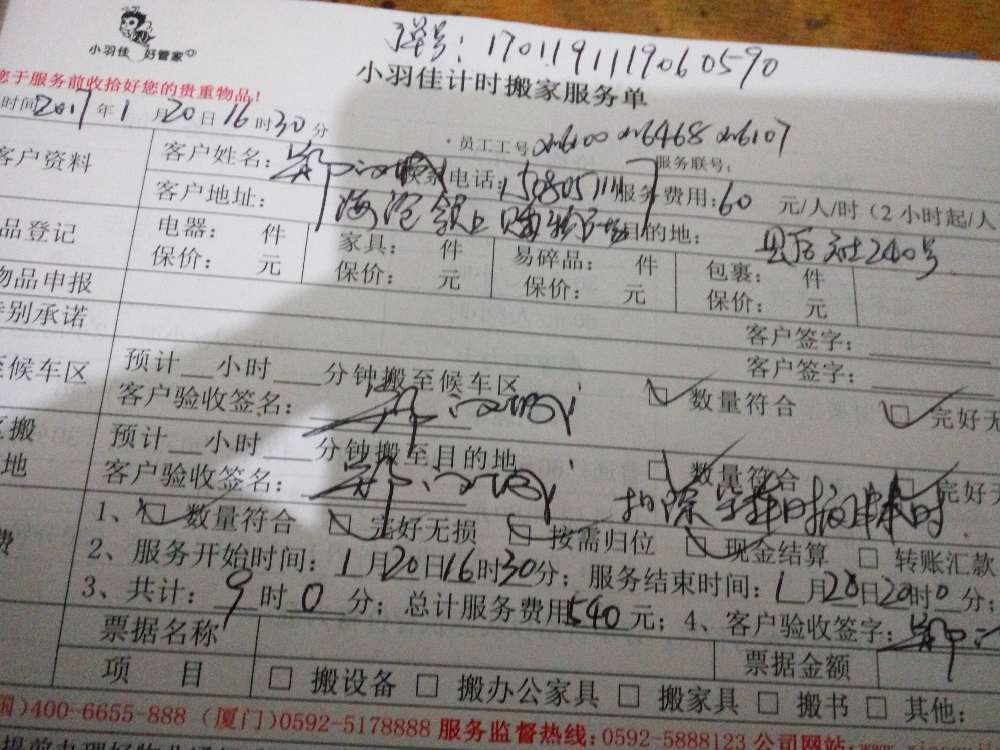 小羽佳 好管家
单号：1701191119060590
小羽佳计时搬家服务单
您于服务前收拾好您的贵重物品！
时间2017年1月20日16时30分
·员工工号xm6100 xm6468 xm6107 服务联号：
客户资料 客户姓名： 联系电话： 服务费用：60 元/人/时（2小时起/人
客户地址： 目的地：
品登记 电器： 件 家具： 件 易碎品： 件 包裹： 件
保价： 元 保价： 元 保价： 元 保价： 元
物品申报
特别承诺 客户签字：
客户签字：
至候车区 预计 小时 分钟搬至候车区
客户验收签名： 数量符合 完好无
搬 预计 小时 分钟搬至目的地
地 客户验收签名： 数量符合 完好无
扣除
费 1、 数量符合 完好无损 按需归位 现金结算 转账汇款
2、服务开始时间：1月20日16时30分；服务结束时间：1月20日20时0分；
3、共计：9时0分；总计服务费用540元；4、客户验收签字：
票据名称 票据金额
项 目 搬设备 搬办公家具 搬家具 搬书 其他：
国)400-6655-888（厦门)0592-5178888 服务监督热线：0592-5888123 公司网站：